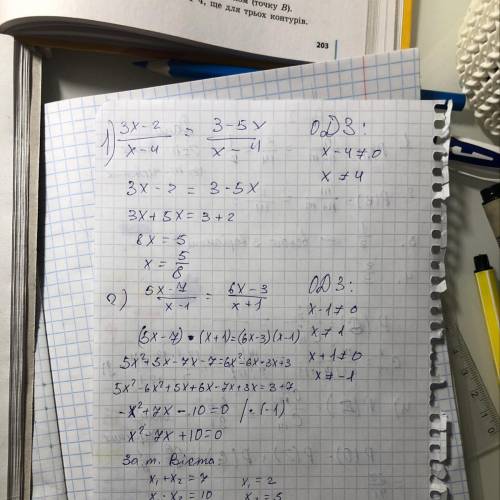 (точку B).
4, ще для трьох контурів.
203
1) (3x-2)/(x-4) = (3-5x)/(x-4)
ОДЗ:
x-4≠0
x≠4
3x-2 = 3-5x
3x+5x=3+2
8x=5
x=5/8
2) (5x-7)/(x-1) = (6x-3)/(x+1)
ОДЗ:
x-1≠0
x≠1
x+1≠0
x≠-1
(5x-7)·(x+1)=(6x-3)(x-1)
5x²+5x-7x-7=6x²-6x-3x+3
5x²-6x²+5x+6x-7x+3x=3+7
-x²+7x-10=0 /·(-1)
x²-7x+10=0
За т. Вієта:
x₁+x₂=7 x₁=2
x₁·x₂=10 x₂=5